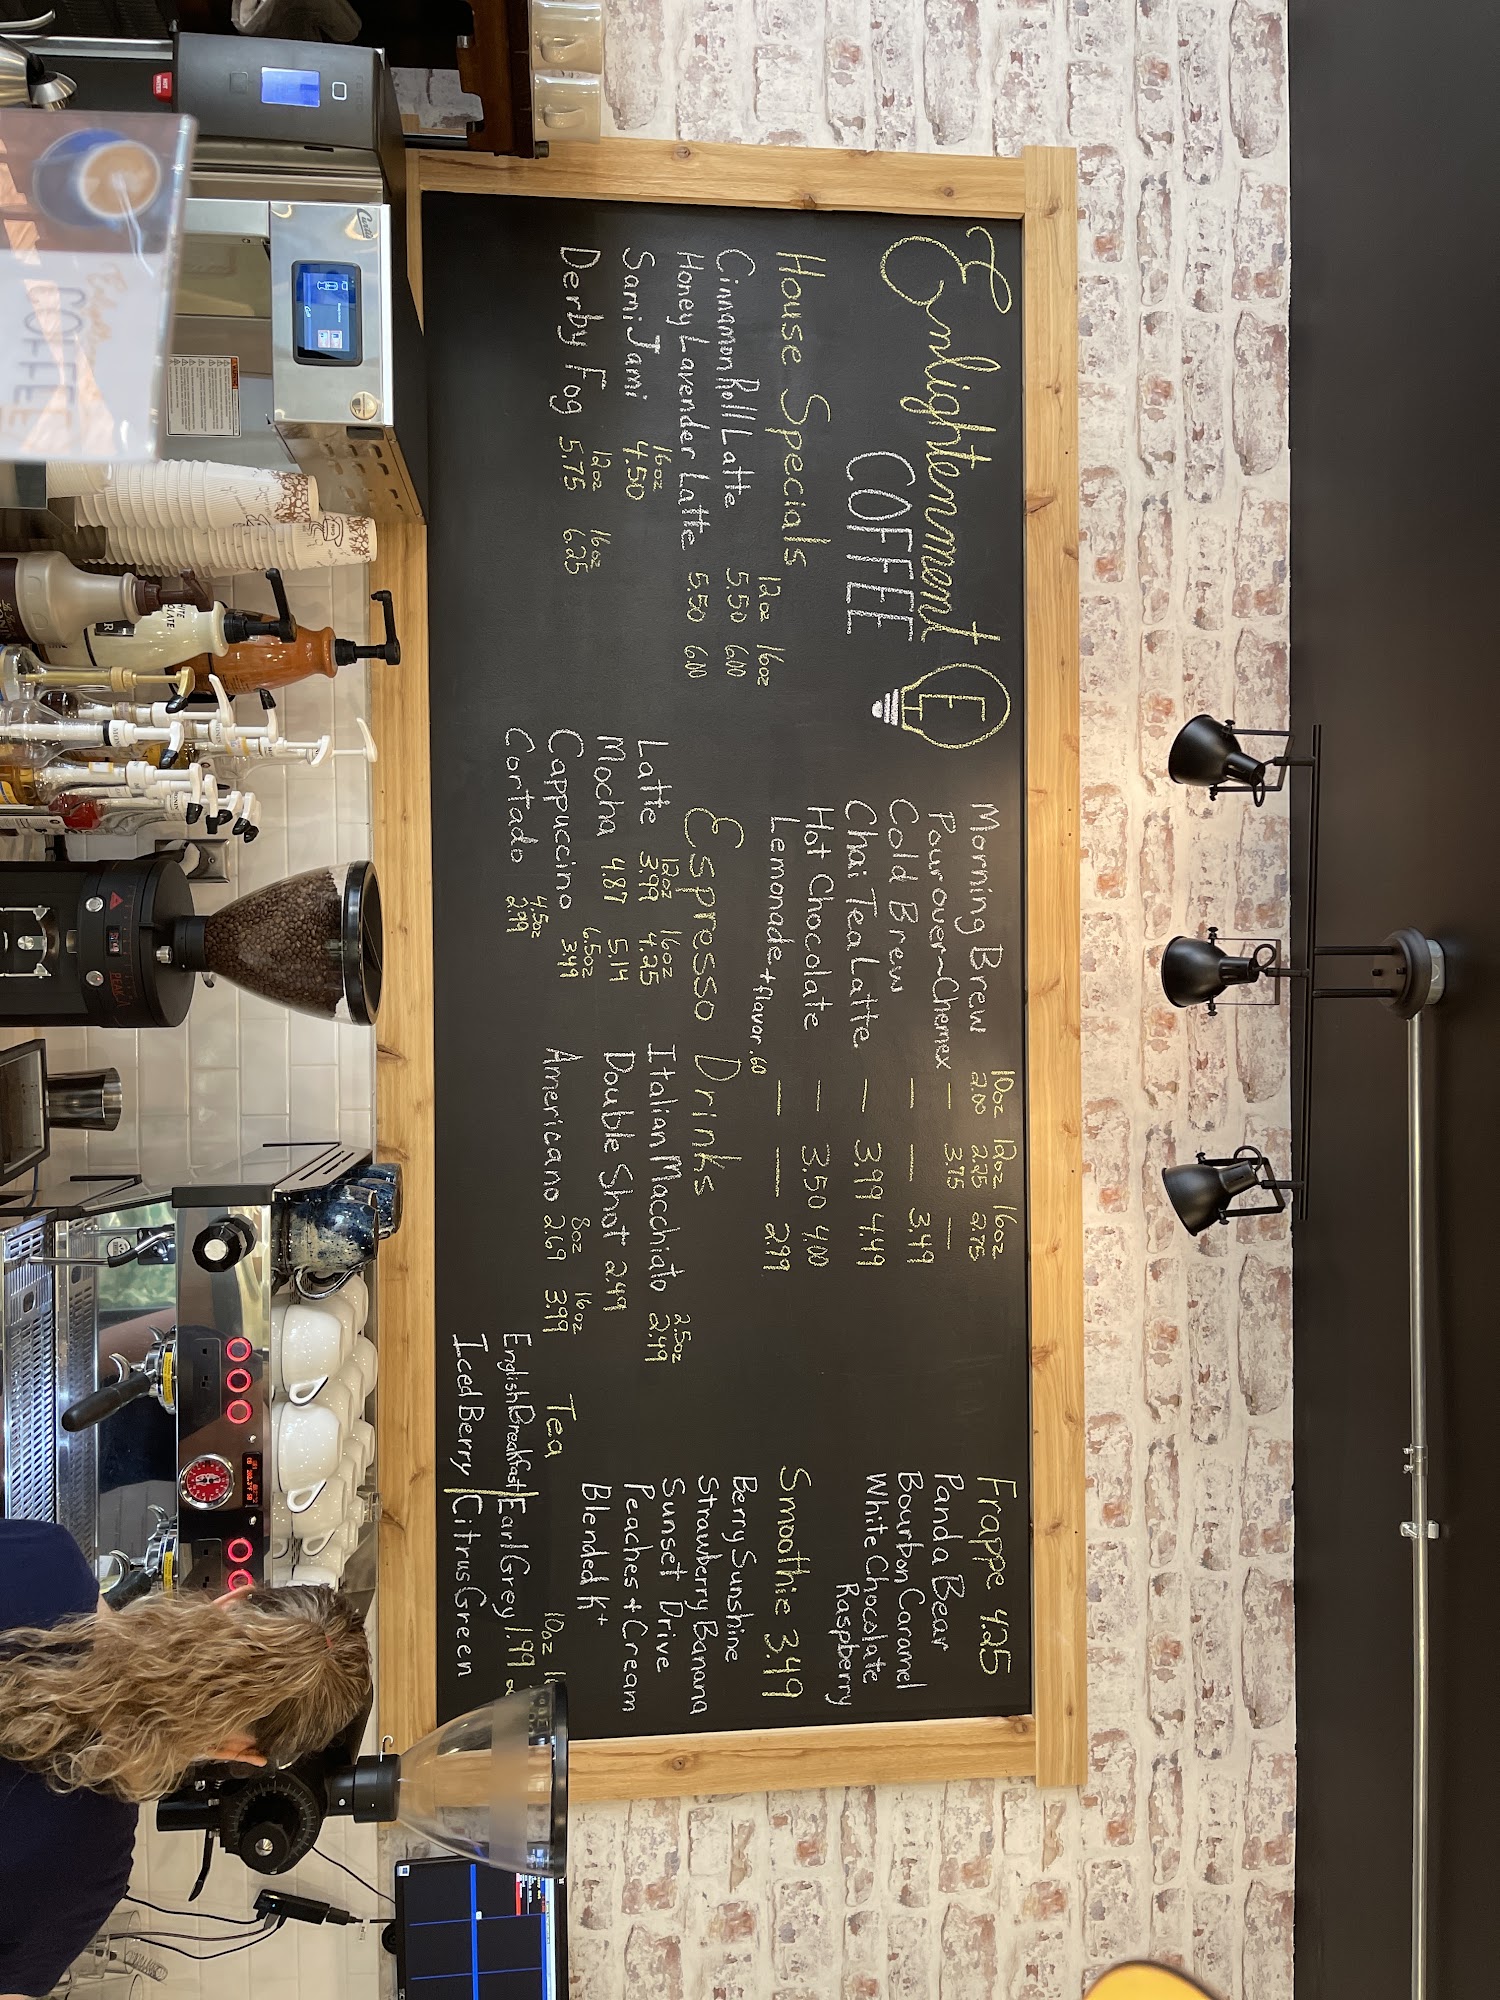 Enlightenment
COFFEE
House Specials
12oz 16oz
Cinnamon Roll Latte 5.50 6.00
Honey Lavender Latte 5.50 6.00
16oz
Sami Jami 4.50
12oz 16oz
Derby Fog 5.75 6.25
10oz 12oz 16oz
Morning Brew 2.00 2.25 2.75
Pourover~Chemex — 3.75 —
Cold Brew — — 3.49
Chai Tea Latte — 3.99 4.49
Hot Chocolate — 3.50 4.00
Lemonade +flavor .60 — — 2.99
Espresso Drinks
12oz 16oz
Latte 3.99 4.25
Mocha 4.87 5.14
6.5oz
Cappuccino 3.49
4.5oz
Cortado 2.99
2.5oz
Italian Macchiato 2.49
Double Shot 2.49
8oz 16oz
Americano 2.69 3.99
Frappe 4.25
Panda Bear
Bourbon Caramel
White Chocolate
Raspberry
Smoothie 3.49
Berry Sunshine
Strawberry Banana
Sunset Drive
Peaches + Cream
Blended K+
Tea
10oz
English Breakfast|Earl Grey 1.99
Iced Berry|Citrus Green
Curtis
COFFEE
HOT WATER